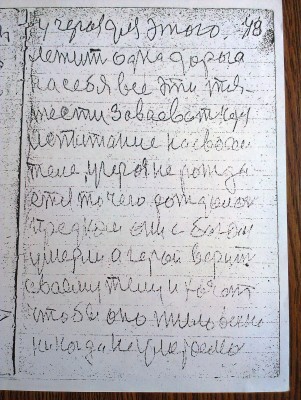 у героя для этого 48
лежит одна дорога
на себя все эти тя-
жести завоевать иду
испытание на своем
теле, у героя не рожда-
ется то чего рождалось
предком они с Богом
умерли а герой верит
своему телу и хочет
чтобы оно тело
никогда не умерало